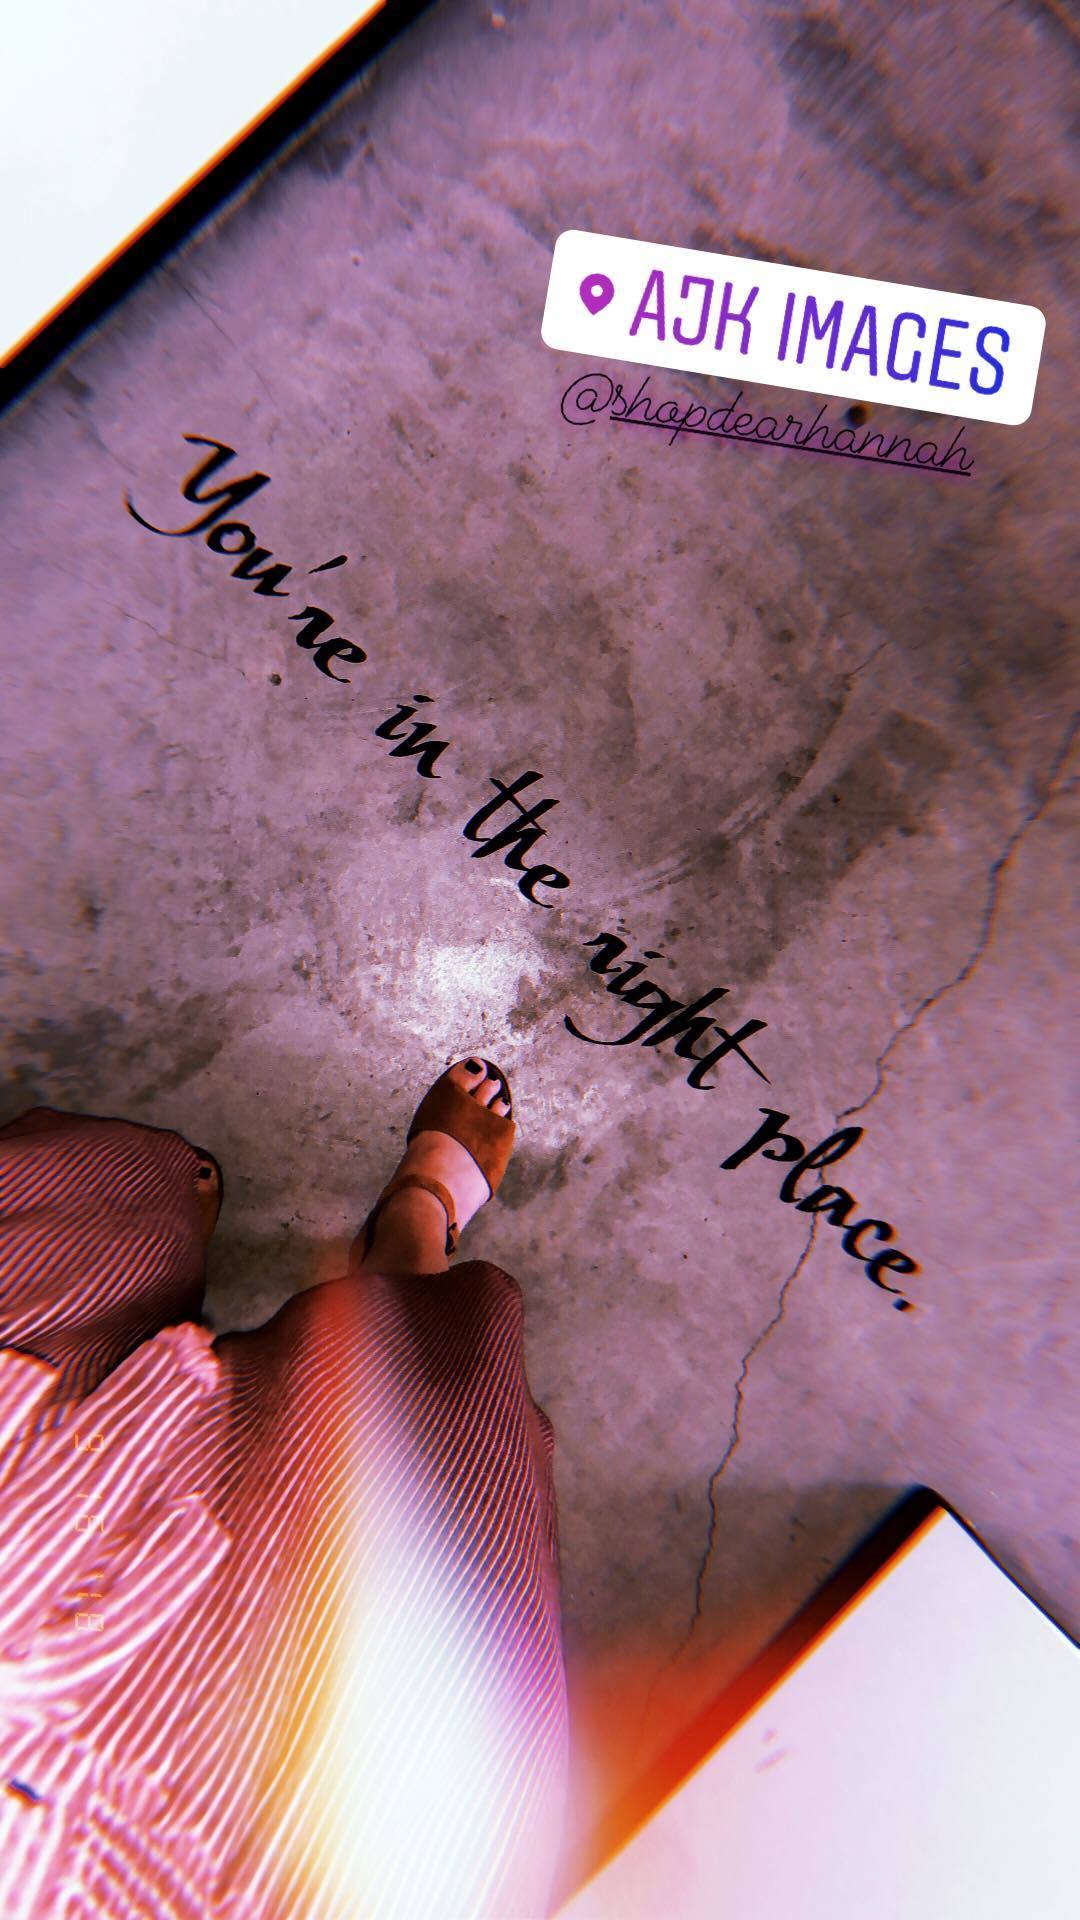 AJK IMAGES
@shopdearhannah
You're in the right place.